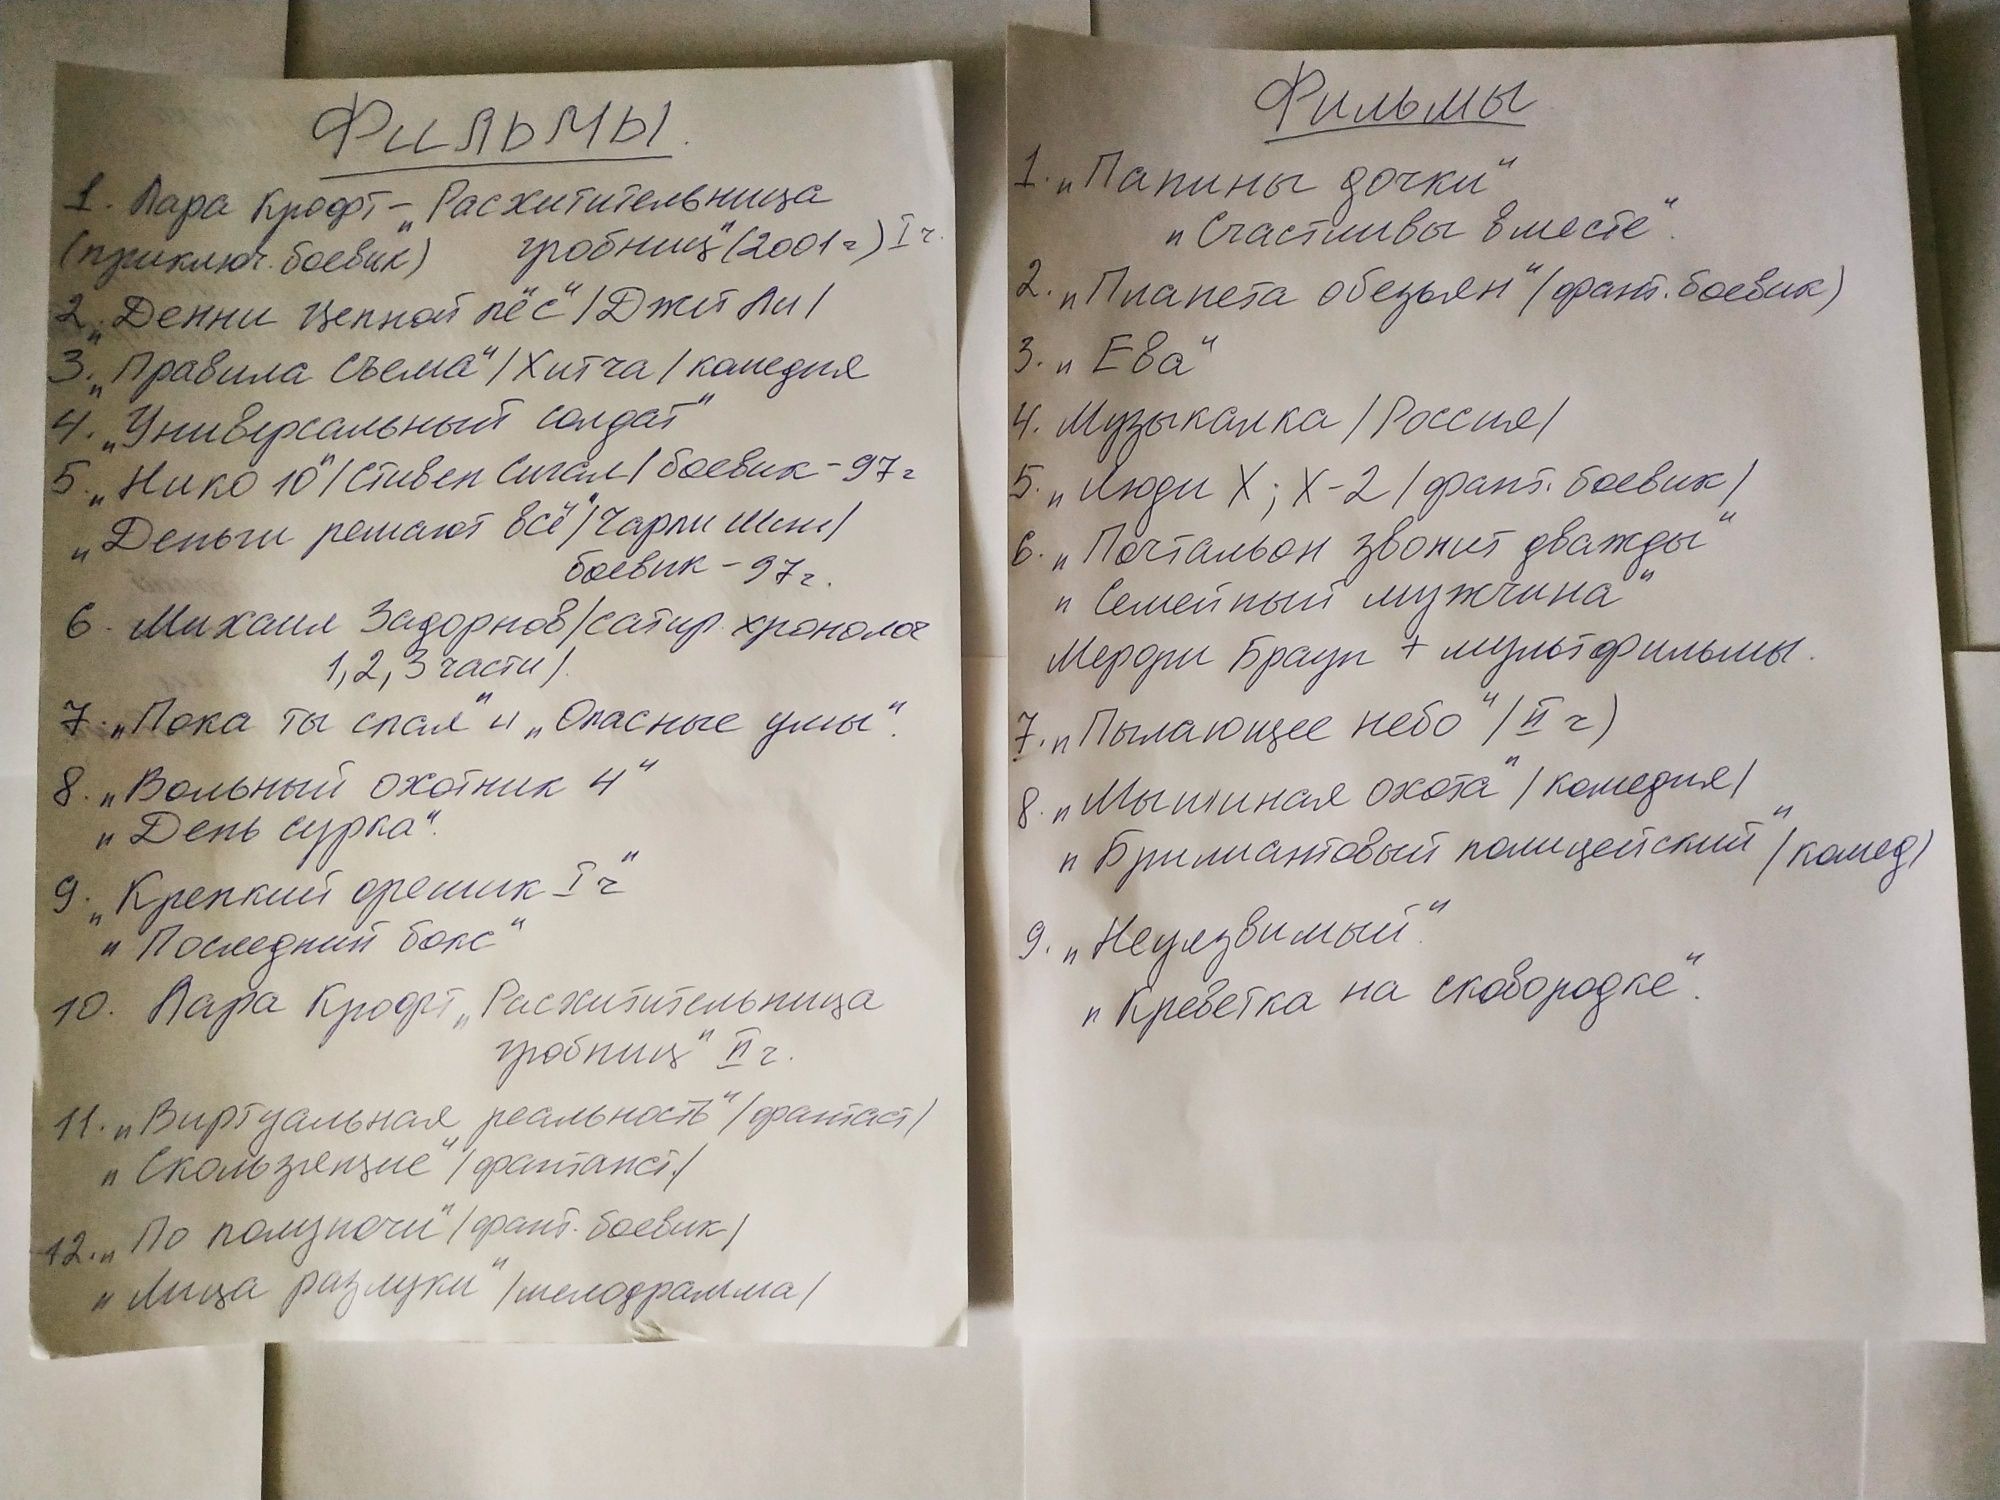 Фильмы.
1. Лара Крофт – „Расхитительница
(приключ. боевик) гробниц" (2001 г) I ч.
2. „Денни цепной пёс" /Джет Ли/
3. „Правила съема" /Хитча/ комедия
4. „Универсальный солдат"
5. „Нико 10" /Стивен Сигал/ боевик – 97 г
„Деньги решают всё" /Чарли Шин/
боевик – 97 г.
6. Михаил Задорнов /сатир. хронолог
1, 2, 3 части/.
7. „Пока ты спал" и „Опасные умы".
8. „Вольный охотник 4"
„День сурка".
9. „Крепкий орешик I ч"
„Последний бокс"
10. Лара Крофт „Расхитительница
гробниц" II ч.
11. „Виртуальная реальность" /фантаст/
„Скользящие" /фантаст./
12. „По полуночи" /фант. боевик/
„Лица разлуки" /мелодрамма/
Фильмы
1. „Папины дочки"
„Счастливы вместе".
2. „Планета обезьян" /фант. боевик)
3. „Ева"
4. Музыкалка /Россия/
5. „Люди X; X-2 /фант. боевик/
6. „Почтальон звонит дважды"
„Семейный мужчина"
Мерфи Браун + мультфильмы.
7. „Пылающее небо" / II ч)
8. „Мышиная охота" /комедия/
„Брилиантовый полицейский" /комед/
9. „Неуязвимый".
„Креветка на сковородке".